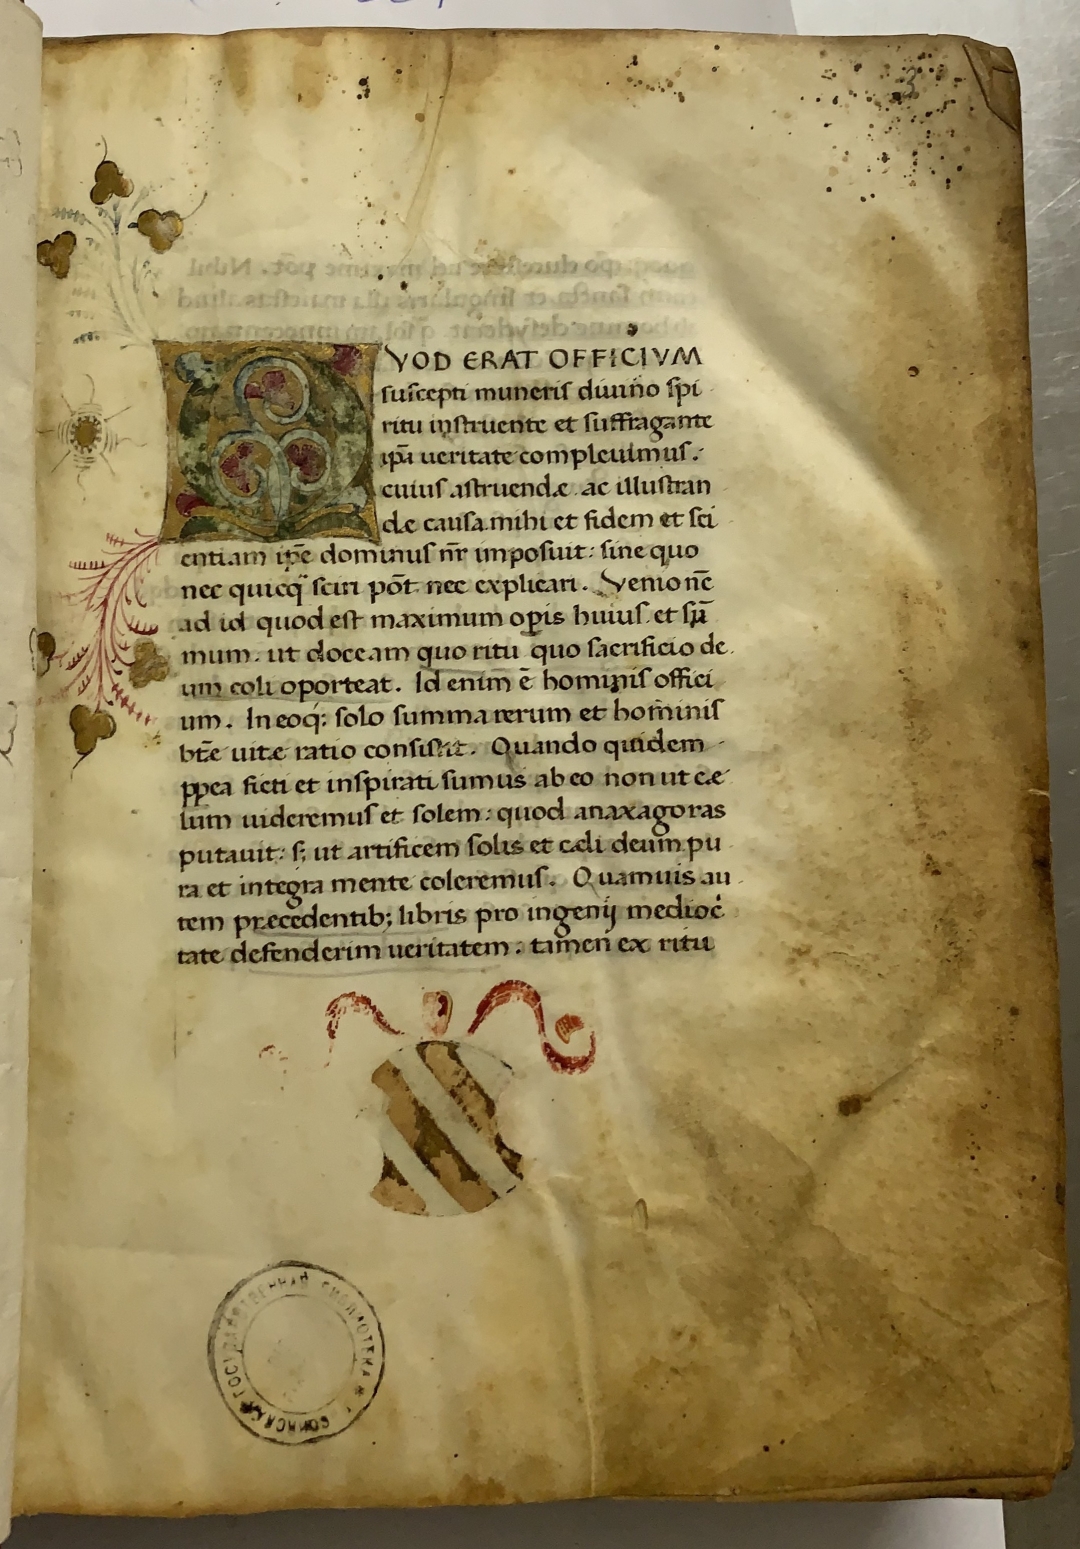 QVOD ERAT OFFICIVM
suscepti muneris diuino spi
ritu instruente et suffragante
ipā ueritate compleuimus.
cuius astruendæ ac illustran
dæ causa mihi et fidem et sci
entiam ip̄e dominus nr̄ imposuit: sine quo
nec quicq̄ sciri pōt nec explicari. Venio nc̄
ad id quod est maximum op̲is huius et sū
mum. ut doceam quo ritu quo sacrificio de
um coli oporteat. Id enim ē hominis offici
um. In eoq; solo summa rerum et hominis
btē uitæ ratio consistit. Quando quidem
ꝓpea ficti et inspirati sumus ab eo non ut cæ
lum uideremus et solem: quod anaxagoras
putauit: s; ut artificem solis et cæli deum pu
ra et integra mente coleremus. Quamuis au
tem præcedentib; libris pro ingenij medioc̄
tate defenderim ueritatem: tamen ex ritu
ГОСУДАРСТВЕННАЯ БИБЛИОТЕКА